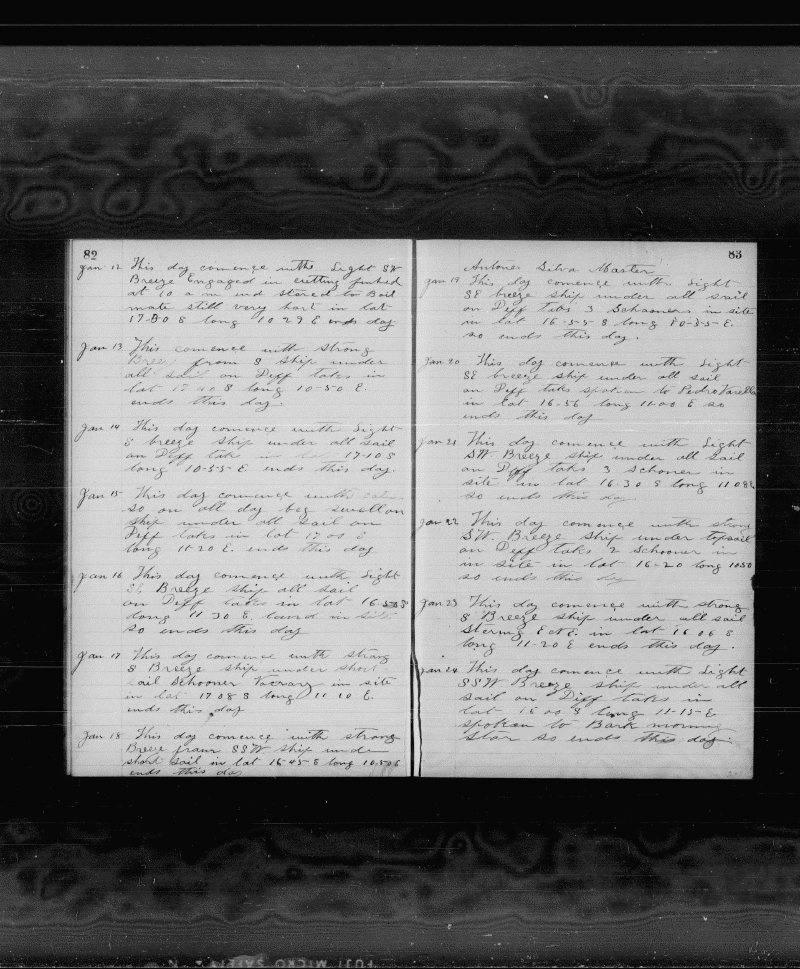 82
Jan 12 This day comence with Light SW
Breeze Engaged in cutting finshed
at 10 a m and stored to Boil
mate still very hart in lat
17-00 S long 10 29 E ends day
Jan 13 This comence with strong
Breeze from S Ship under
all sail on Deff takes in
lat 17 00 S long 10-50 E.
ends this day
Jan 14 This day comence with Light
S breeze Ship under all sail
on Deff taks in lat 17-10 S
long 10-55 E ends this day.
Jan 15 This day comence with calm
so on all day beg swell on
Ship under all sail on
Deff takes in lat 17 00 S
long 11-20 E. ends this day
Jan 16 This day comence with Light
SE Breeze Ship all sail
on Deff takes in lat 16 S
long 11 30 E. land in site
so ends this day
Jan 17 This day comence with strong
S Breeze Ship under short
sail Schooner in site
in lat 17 08 S long 11 10 E.
ends this day
Jan 18 This day comence with strong
Breeze fram SSW Ship under
short sail in lat 16-45 S long 10-50 E
ends this day
83
Antone Silva Master
Jan 19 This day comence with Light
SE breeze Ship under all sail
on Deff taks 3 Schooners in site
in lat 16-55 S long 10-35 E.
so ends this day.
Jan 20 This day comence with Light
SE breeze Ship under all sail
on Deff taks spoken to Pedro Varella
in lat 16-56 long 11-00 E so
ends this day
Jan 21 This day comence with Light
SW. Breeze Ship under all Sail
on Deff taks 3 Schoner in
site in lat 16-30 S long 11 08
so ends this day
Jan 22 This day comence with strong
SW. Breeze Ship under topsail
on Deff taks 2 Schooner in
in site in lat 16-20 long 10 50
so ends this day
Jan 23 This day comence with strong
S Breeze Ship under all sail
Stering E in lat 16 06 S
long 11-20 E ends this day.
Jan 24 This day comence with Light
SSW Breeze Ship under all
sail on Diff taks in
lat 16 00 S long 11-15-E
spoken to Bark morning
Star so ends this day.